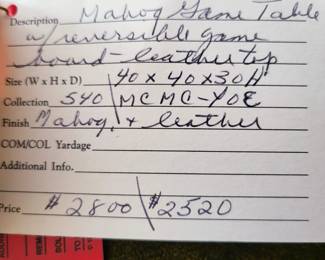 Description Mahog Game Table
w/reversible game
board-leather top
Size (W x H x D) 40 x 40 x 30H
Collection 540 / MCMC-40E
Finish Mahog, + leather
COM/COL Yardage
Additional Info.
Price $2800 \ $2520